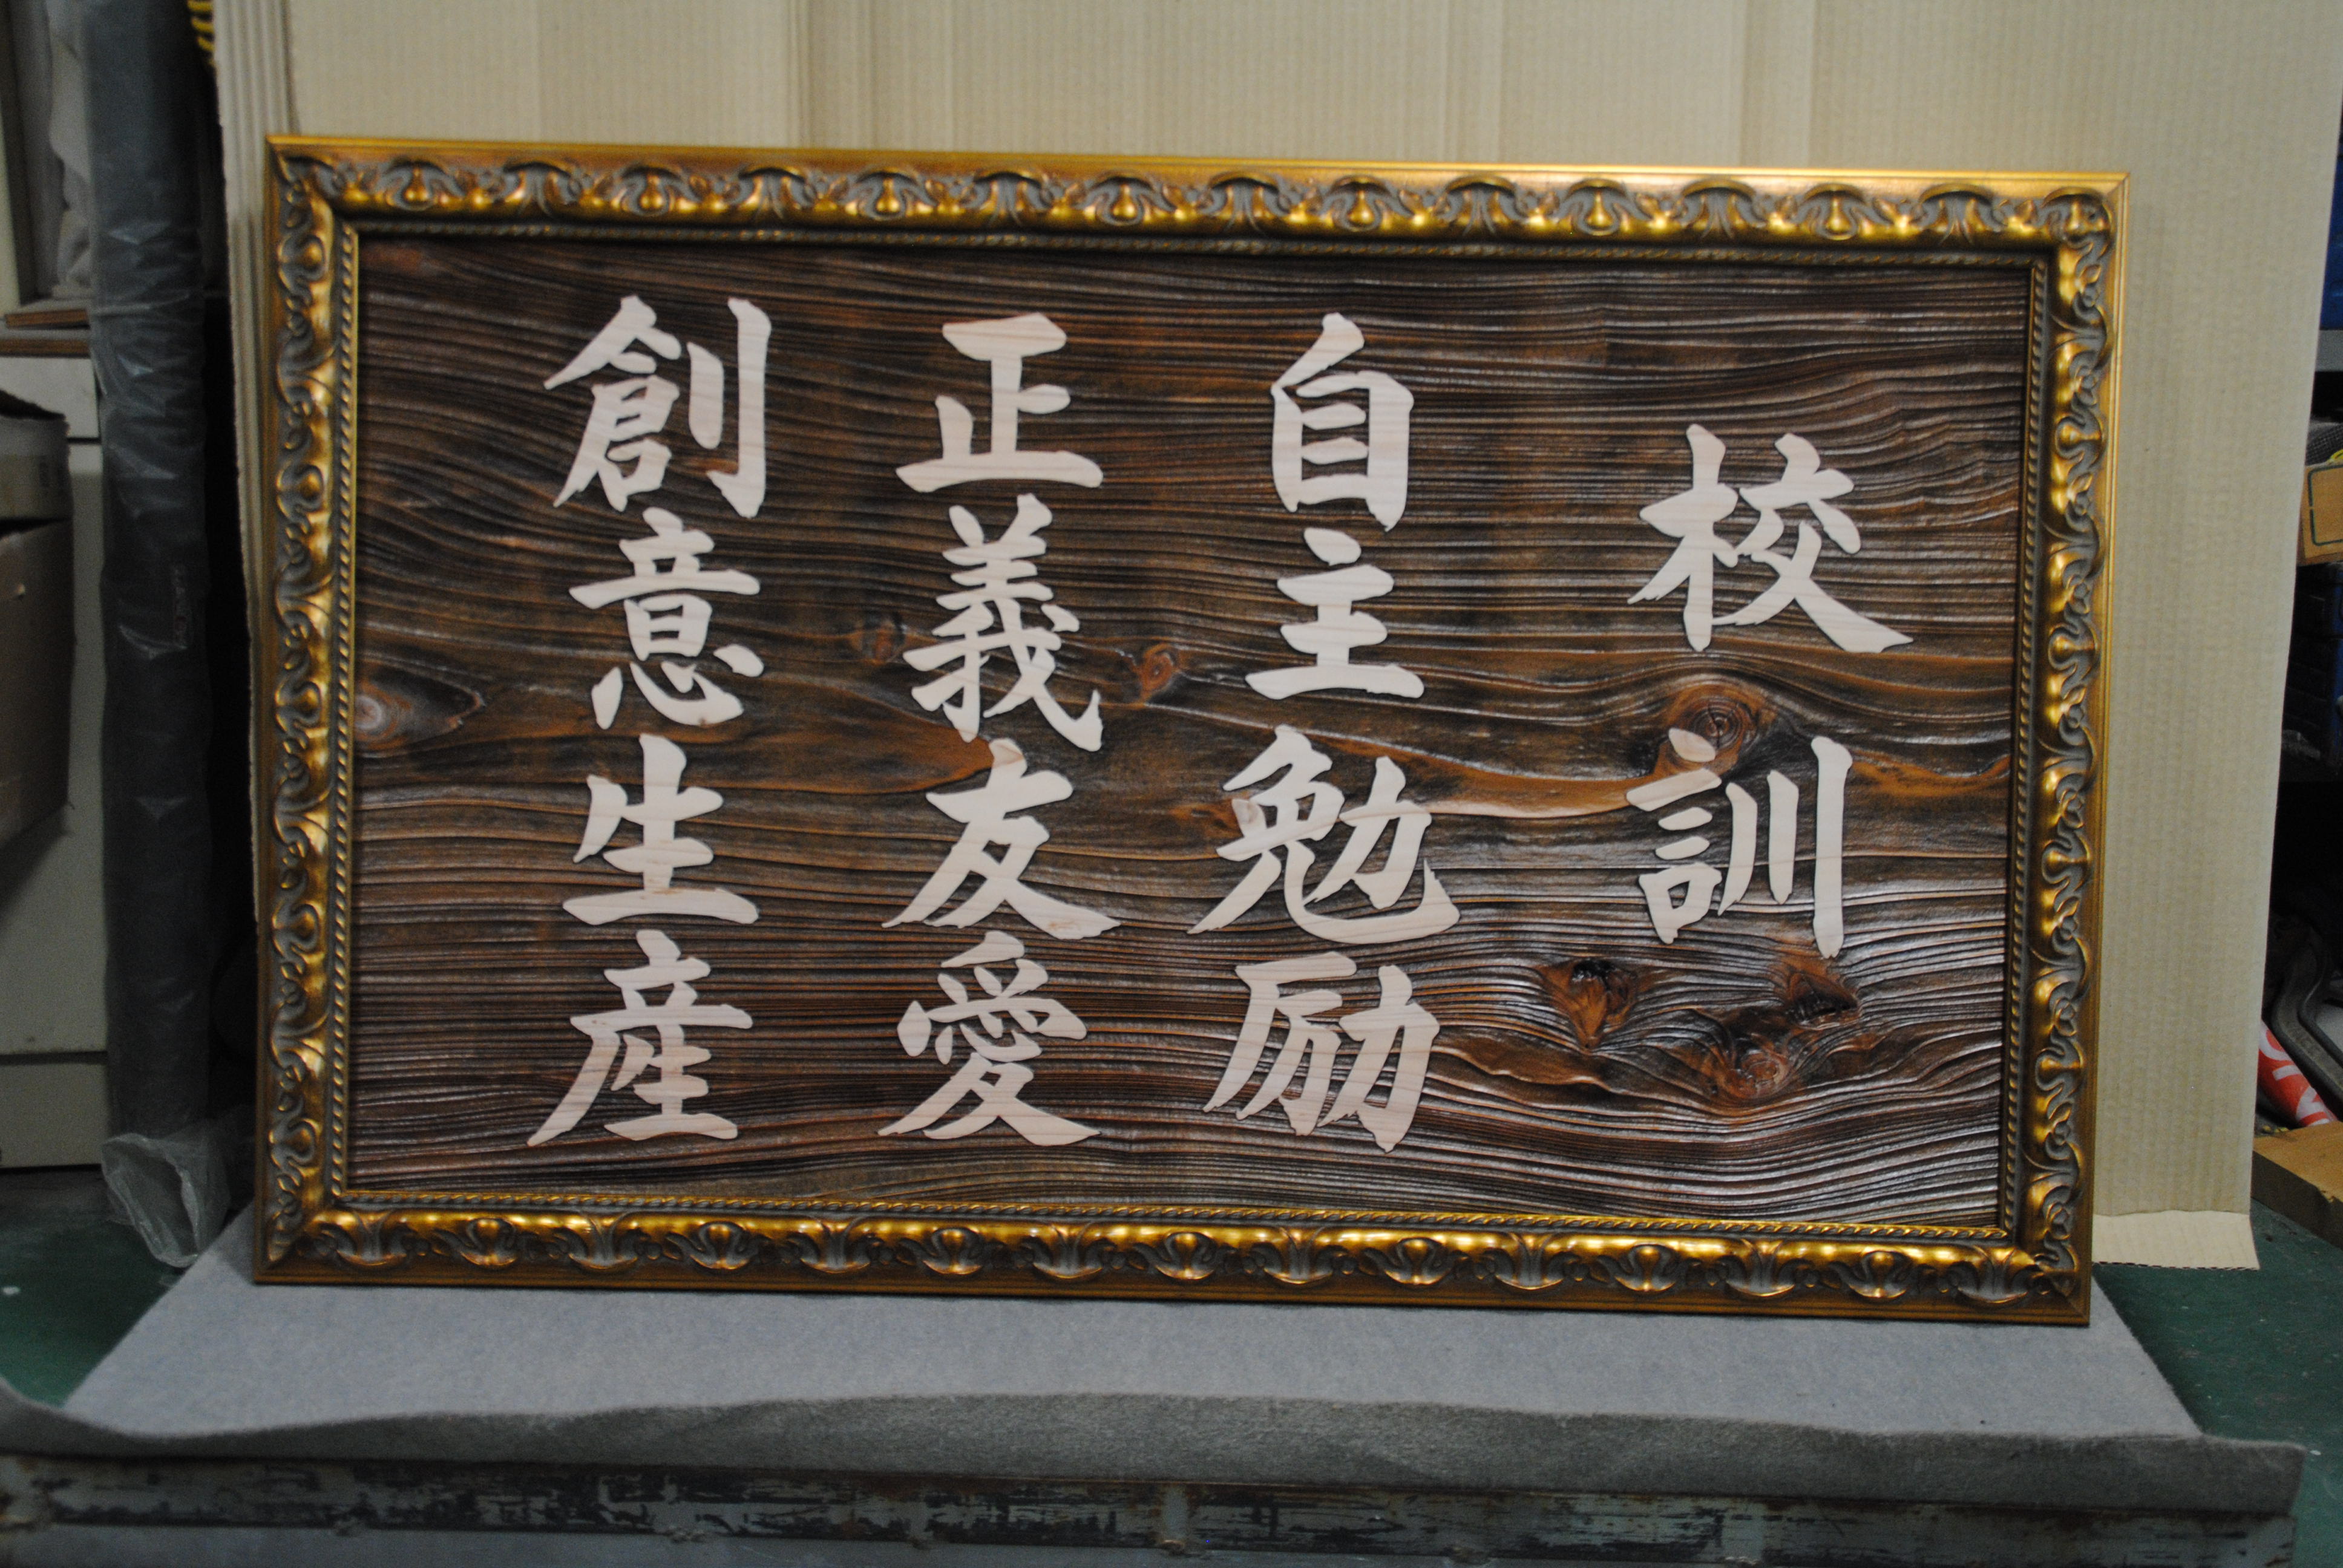 校訓
自主勉励
正義友愛
創意生産